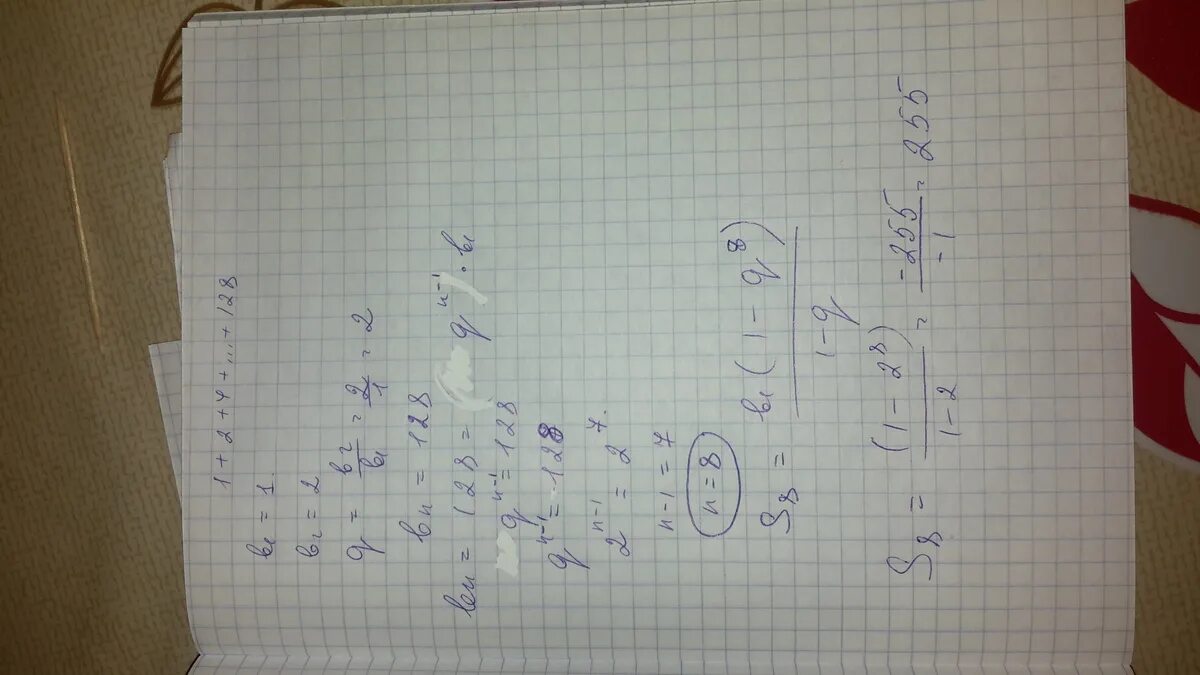 1 + 2 + 4 + ... + 128
b₁ = 1
b₂ = 2
q = b₂/b₁ = 2/1 = 2
bn = 128
bn = 128 = qⁿ⁻¹) · b₁
qⁿ⁻¹ = 128
qⁿ⁻¹ = 128
2ⁿ⁻¹ = 2⁷.
n-1 = 7
n = 8
S₈ = b₁(1 - q⁸)/1-q
S₈ = (1 - 2⁸)/1-2 = -255/-1 = 255